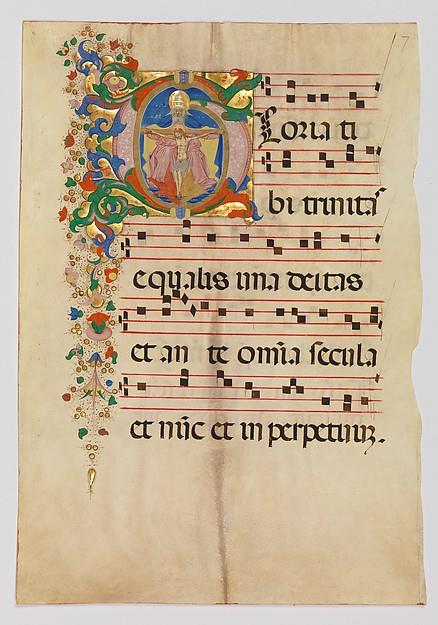 17
Gloria ti
bi trinitaˢ
equalis una deitas
et an te om̄ia ſecula
et nūc et in perpetuuꝫ.